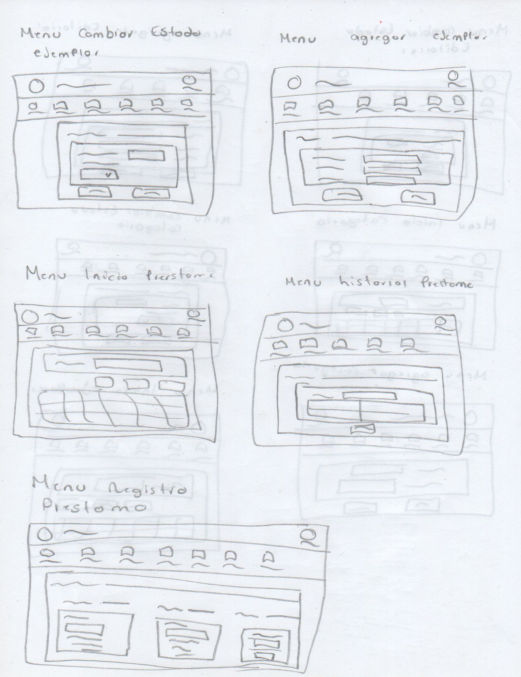 Menu Cambiar Estado
ejemplar
Menu agregar ejemplar
Menu Inicio Prestamo
Menu historial Prestamo
Menu Registro
Prestamo